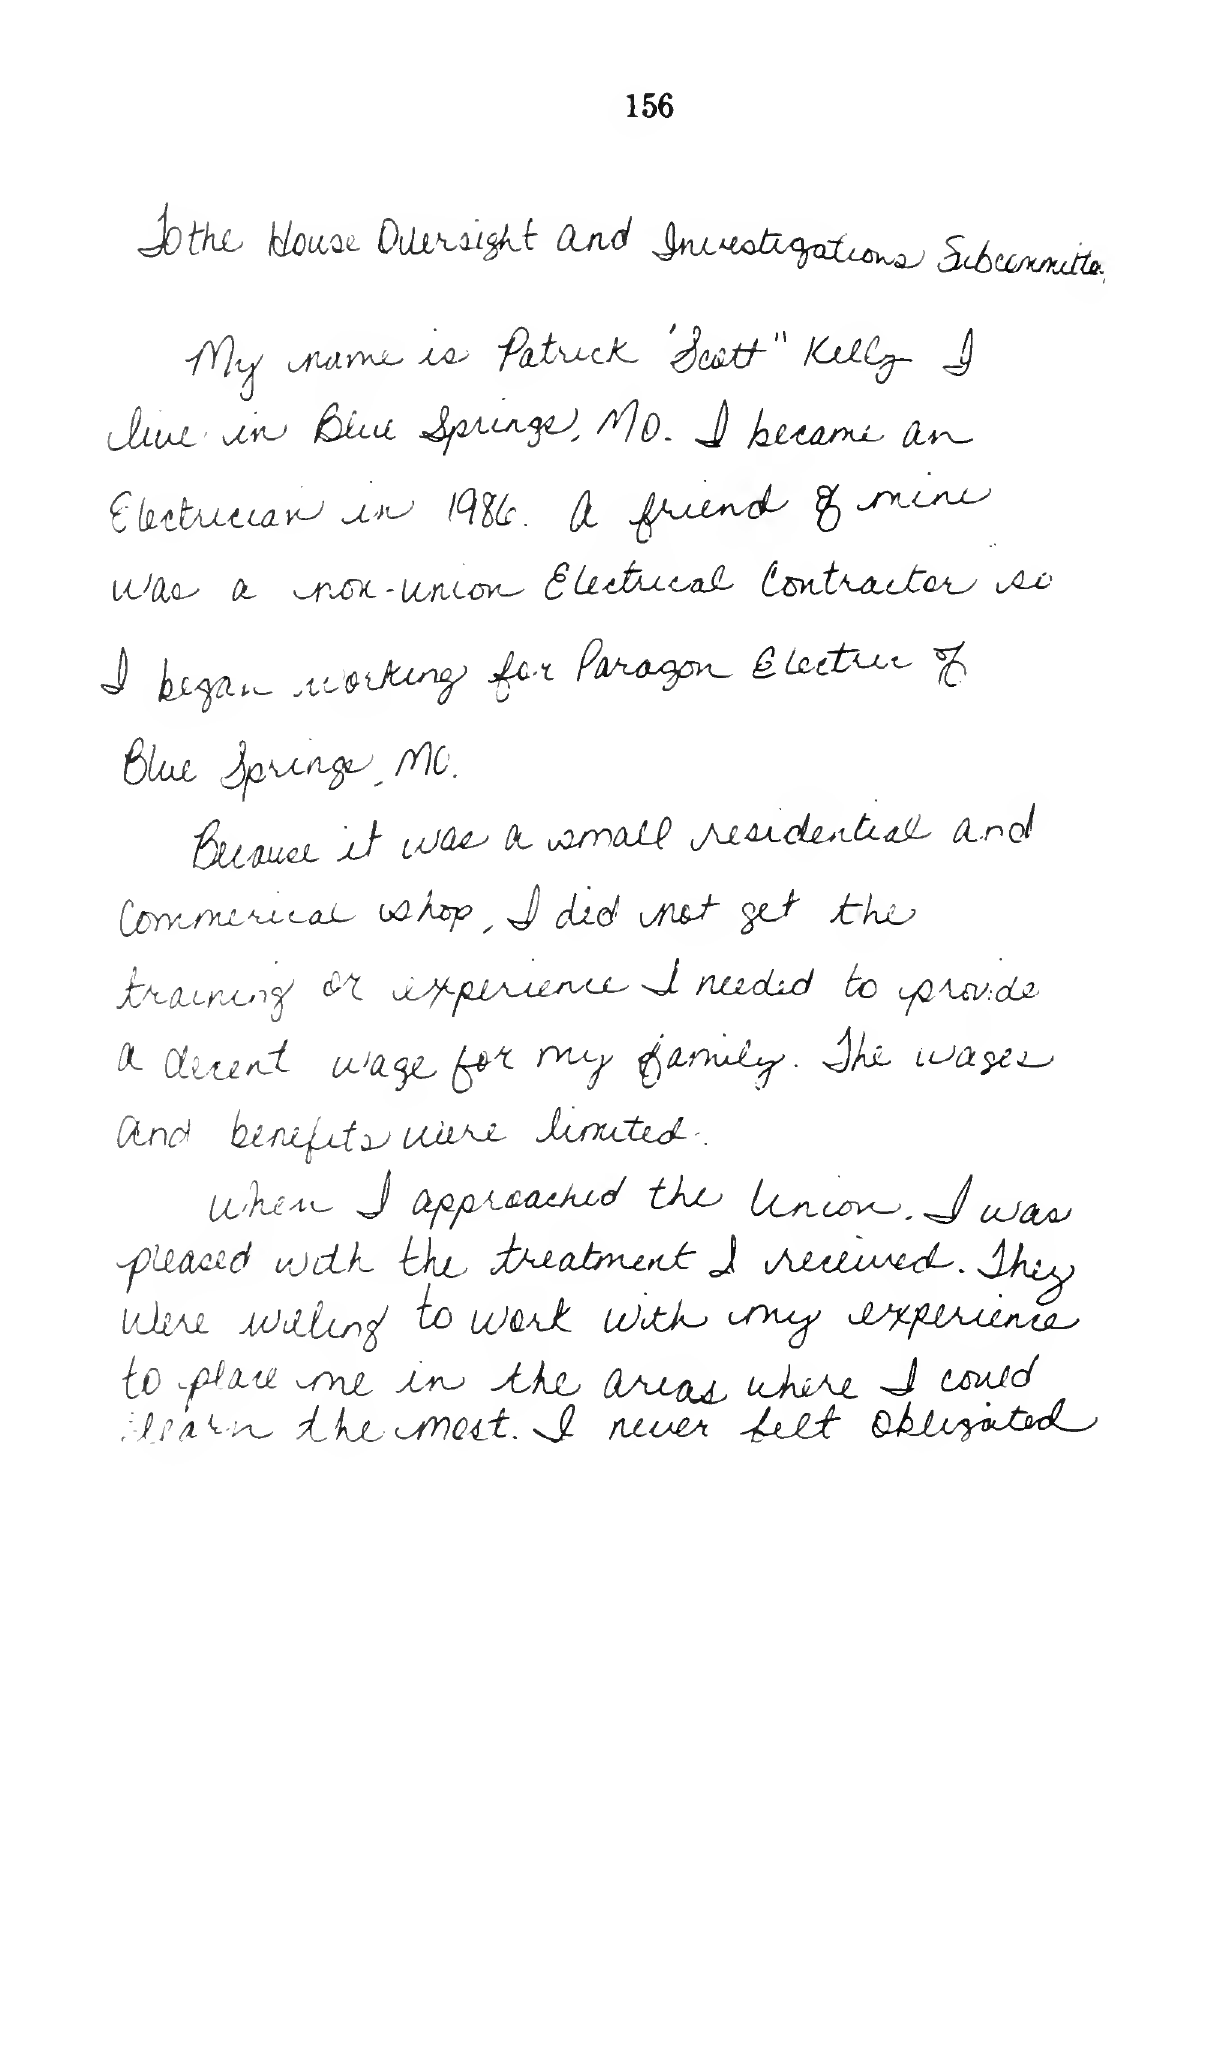 156
To the House Oversight and Investigations Subcommittee,
My name is Patrick "Scott" Kelly I
live in Blue Springs, MO. I became an
Electrician in 1986. A friend of mine
was a non-union Electrical Contractor so
I began working for Paragon Electric of
Blue Springs, MO.
Because it was a small residential and
Commerical shop, I did not get the
training or experience I needed to provide
a decent wage for my family. The wages
and benefits were limited.
When I approached the Union. I was
pleased with the treatment I received. They
were willing to work with my experience
to place me in the areas where I could
learn the most. I never felt obligated